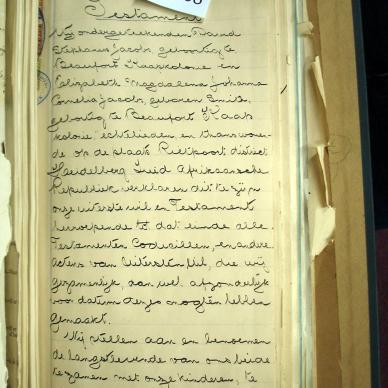 Testament
Wij ondergeteekenden Frans
Stephanus Jacobs, geboortig te
Beaufort Kaapkolonie en
Elizabeth Magdalena Johanna
Cornelia Jacobs, geboren Smit,
geboortig te Beaufort Kaap
kolonie echtelieden en thans wonen-
de op de plaats Rietpoort district
Heidelberg Zuid Afrikaansche
Republiek verklaren dit te zijn
onze uiterste wil en Testament
herroepende tot dat einde alle
Testamenten Codicillen, en andere
acten van Uitersten Wil, die wij
gezamenlijk, dan wel afzonderlijk
voor datum dezes mogten hebben
gemaakt.
Wij stellen aan en benoemen
de langstlevende van ons beide
te zamen met onze kinderen, te